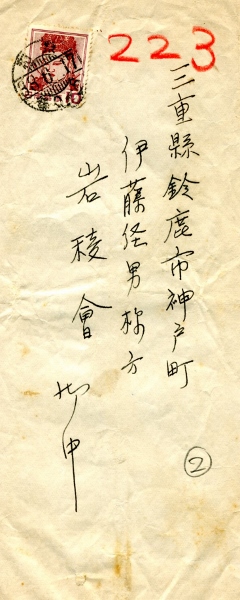 223
三重縣鈴鹿市神戸町
伊藤径男様方
岩稜會
御中
②